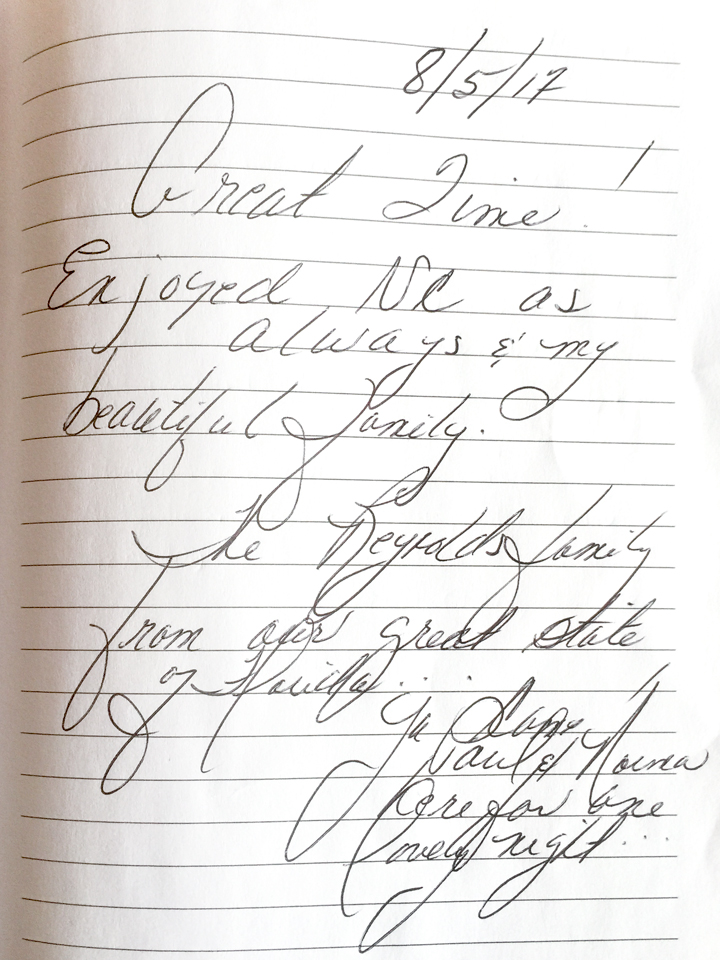 8/5/17
Great Time!
Enjoyed NC as
always & my
beautiful family.
The Reynolds family
from our great state
of Florida....
Paul & Norma
are for one
lovely night...